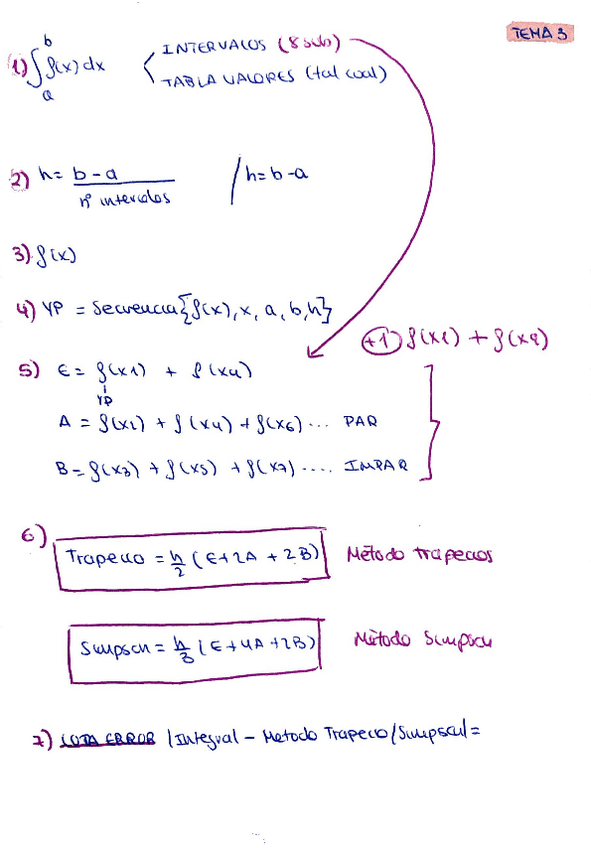 TEMA 3
1) ∫ab f(x) dx < INTERVALOS (8 sub)
TABLA VALORES (tal cual)
2) h = b - a / nº intervalos / h = b - a
3) f(x)
4) YP = Secuencia{f(x), x, a, b, h}
+1) f(x1) + f(x9)
5) E = f(x1) + f(x4)
YP
A = f(x2) + f(x4) + f(x6) ... PAR
B = f(x3) + f(x5) + f(x7) .... IMPAR
6)
Trapecio = h/2 (E + 2A + 2B) Método trapecios
Simpson = h/3 (E + 4A + 2B) Método Simpson
7) COTA ERROR |Integral - Metodo Trapecio/Simpson| =